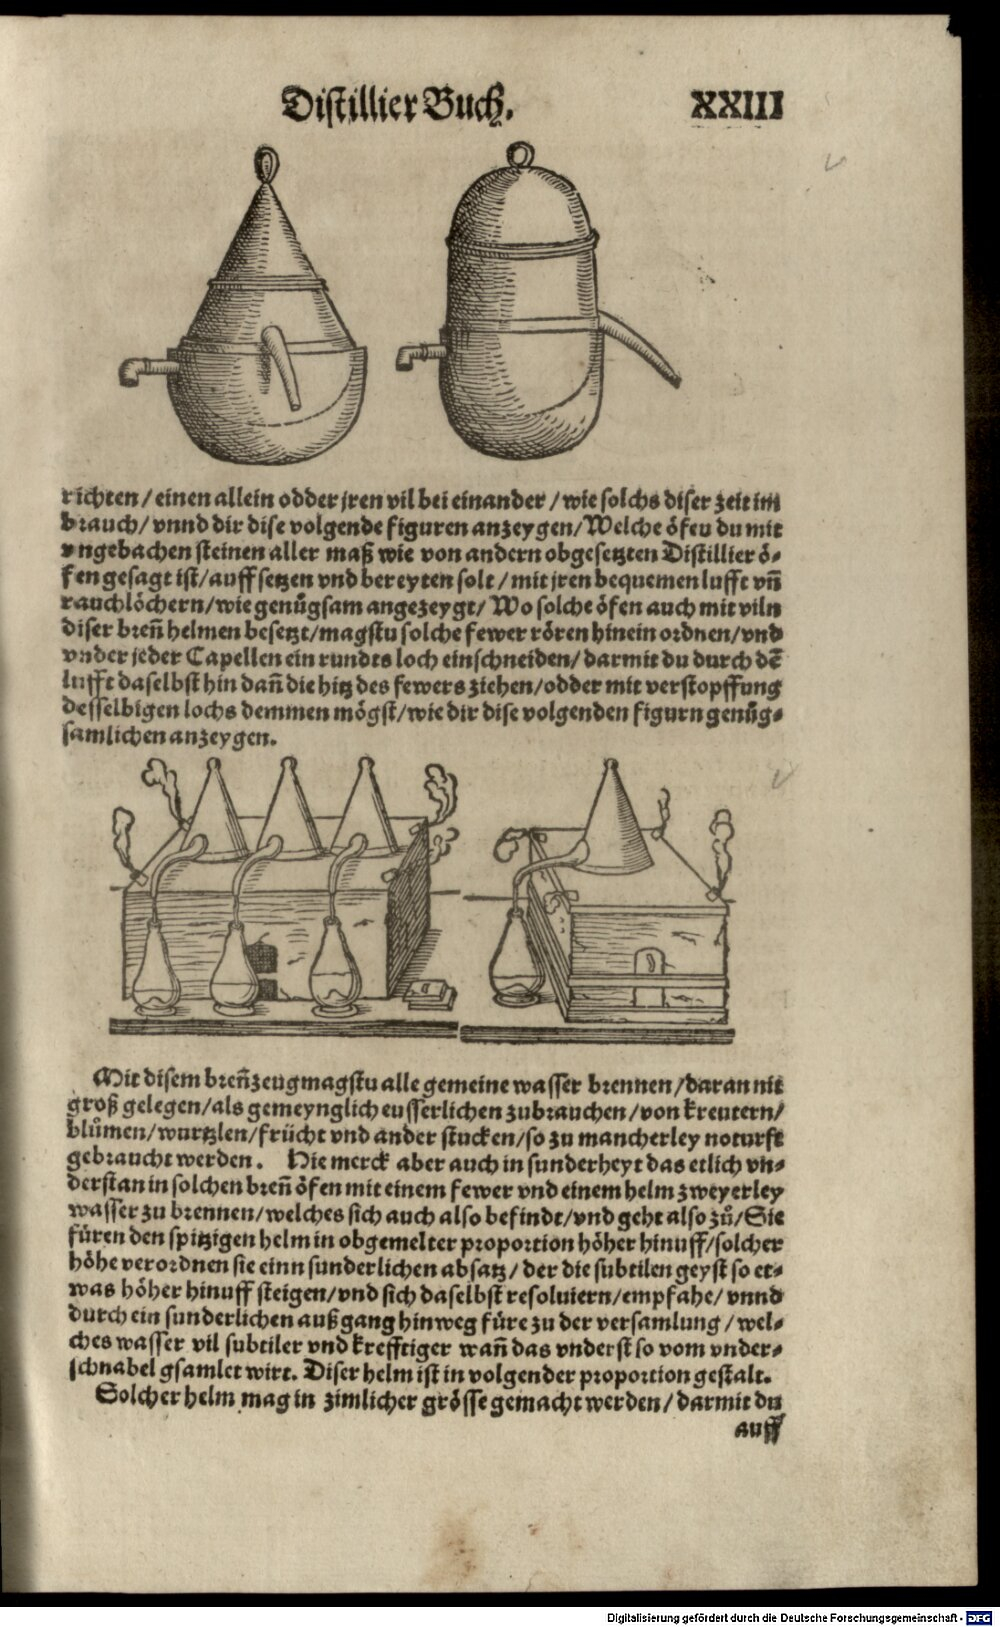 Distillier Buch.
XXIII
richten / einen allein odder jren vil bei einander / wie solchs diser zeit im
brauch / vnnd dir dise volgende figuren anzeygen / Welche öfen du mit
vngebachen steinen aller maß wie von andern obgesetzten Distillier ö-
fen gesagt ist / auff setzen vnd bereyten solt / mit jren bequemen lufft vñ
rauchlöchern / wie genůgsam angezeygt / Wo solche öfen auch mit viln
diser breñ helmen besetzt / magstu solche fewer rören hinein ordnen / vnd
vnder jeder Capellen ein rundts loch einschneiden / darmit du durch dē
lufft daselbst hin dañ die hitz des fewers ziehen / odder mit verstopffung
desselbigen lochs demmen mögst / wie dir dise volgenden figurn genůg-
samlichen anzeygen.
Mit disem breñzeug magstu alle gemeine wasser brennen / daran nit
groß gelegen / als gemeynglich eusserlichen zubrauchen / von kreutern /
blůmen / wurtzlen / frücht vnd ander stucken / so zu mancherley noturft
gebraucht werden. Hie merck aber auch in sunderheyt das etlich vn-
derstan in solchen breñ öfen mit einem fewer vnd einem helm zweyerley
wasser zu brennen / welches sich auch also befindt / vnd geht also zů / Sie
füren den spitzigen helm in obgemelter proportion höher hinuff / solcher
höhe verordnen sie einn sunderlichen absatz / der die subtilen geyst so et-
was höher hinuff steigen / vnd sich daselbst resoluiern / empfahe / vnnd
durch ein sunderlichen außgang hinweg füre zu der versamlung / wel-
ches wasser vil subtiler vnd krefftiger wañ das vnderst so vom vnder-
schnabel gsamlet wirt. Diser helm ist in volgender proportion gestalt.
Solcher helm mag in zimlicher grösse gemacht werden / darmit du
auff
Digitalisierung gefördert durch die Deutsche Forschungsgemeinschaft - DFG